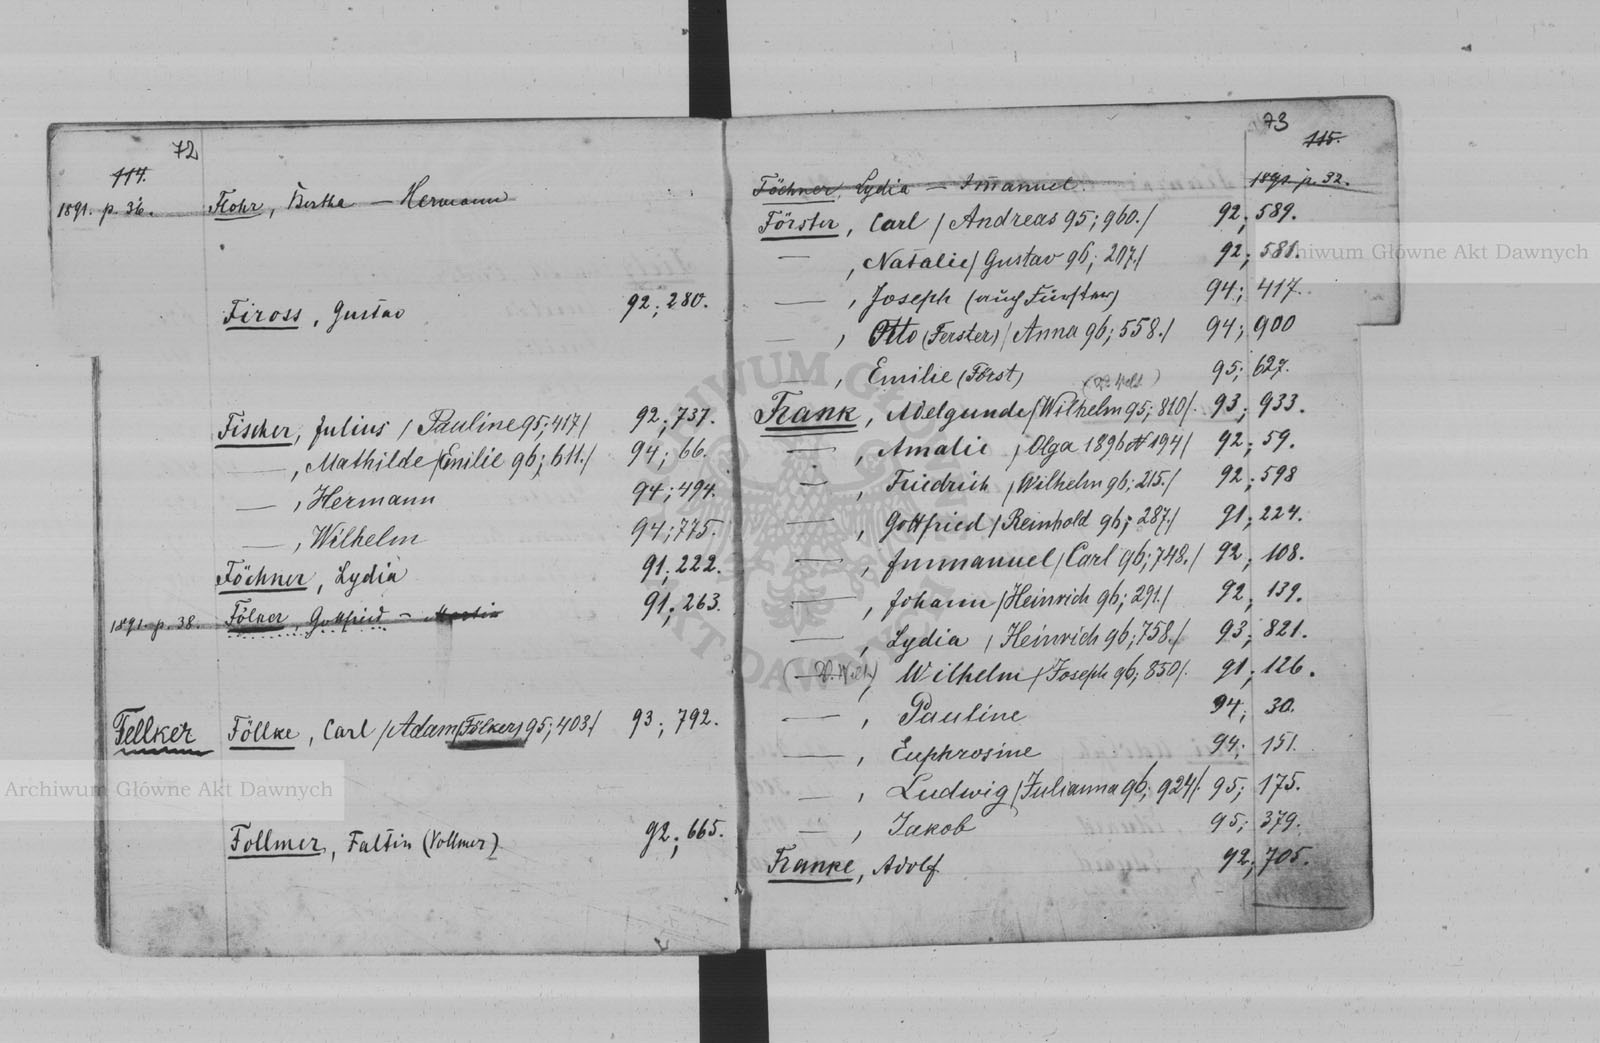 72
114.
1891. p. 36. Flohr, Bertha — Hermann
Fiross, Gustav 92; 280.
Fischer, Julius / Pauline 95; 417/ 92; 737.
—, Mathilde /Emilie 96; 611./ 94; 66.
—, Hermann 94; 494.
—, Wilhelm 94; 775.
Föchner, Lydia 91; 222.
1891. p. 38. Fölker, Gottfried — Martin 91; 263.
Fellker Föllke, Carl /Adam (Fölker) 95; 403/ 93; 792.
Follmer, Faltin (Vollmer) 92; 665.
73
115.
Föchner, Lydia — Immanuel. 1891. p. 32.
Förster, Carl / Andreas 95; 960./ 92; 589.
—, Natalie / Gustav 96; 207./ 92; 581.
—, Joseph (auch Fürster) 94; 417.
—, Otto (Ferster) / Anna 96; 558./ 94; 900
—, Emilie (Först) 95; 627.
Frank, Adelgunde /Wilhelm 95; 810/. 93; 933.
—, Amalie / Olga 1896 # 194/ 92; 59.
—, Friedrich / Wilhelm 96; 215./ 92; 598
—, Gottfried / Reinhold 96; 287./ 91; 224.
—, Immanuel / Carl 96; 748./ 92; 108.
—, Johann / Heinrich 96; 291./ 92; 139.
—, Lydia / Heinrich 96; 758./ 93; 821.
—, Wilhelm / Joseph 96; 850/. 91; 126.
—, Pauline 94; 30.
—, Euphrosine 94; 151.
—, Ludwig / Julianna 96; 924/. 95; 175.
—, Jakob 95; 379.
Franke, Adolf 92; 705.
Archiwum Główne Akt Dawnych
Archiwum Główne Akt Dawnych